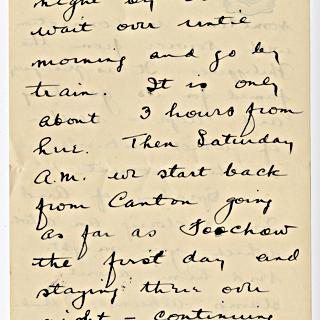 night by
wait over until
morning and go by
train. It is only
about 3 hours from
here. Then Saturday
A.M. we start back
from Canton going
as far as Foochow
the first day and
staying there over
night – continuing